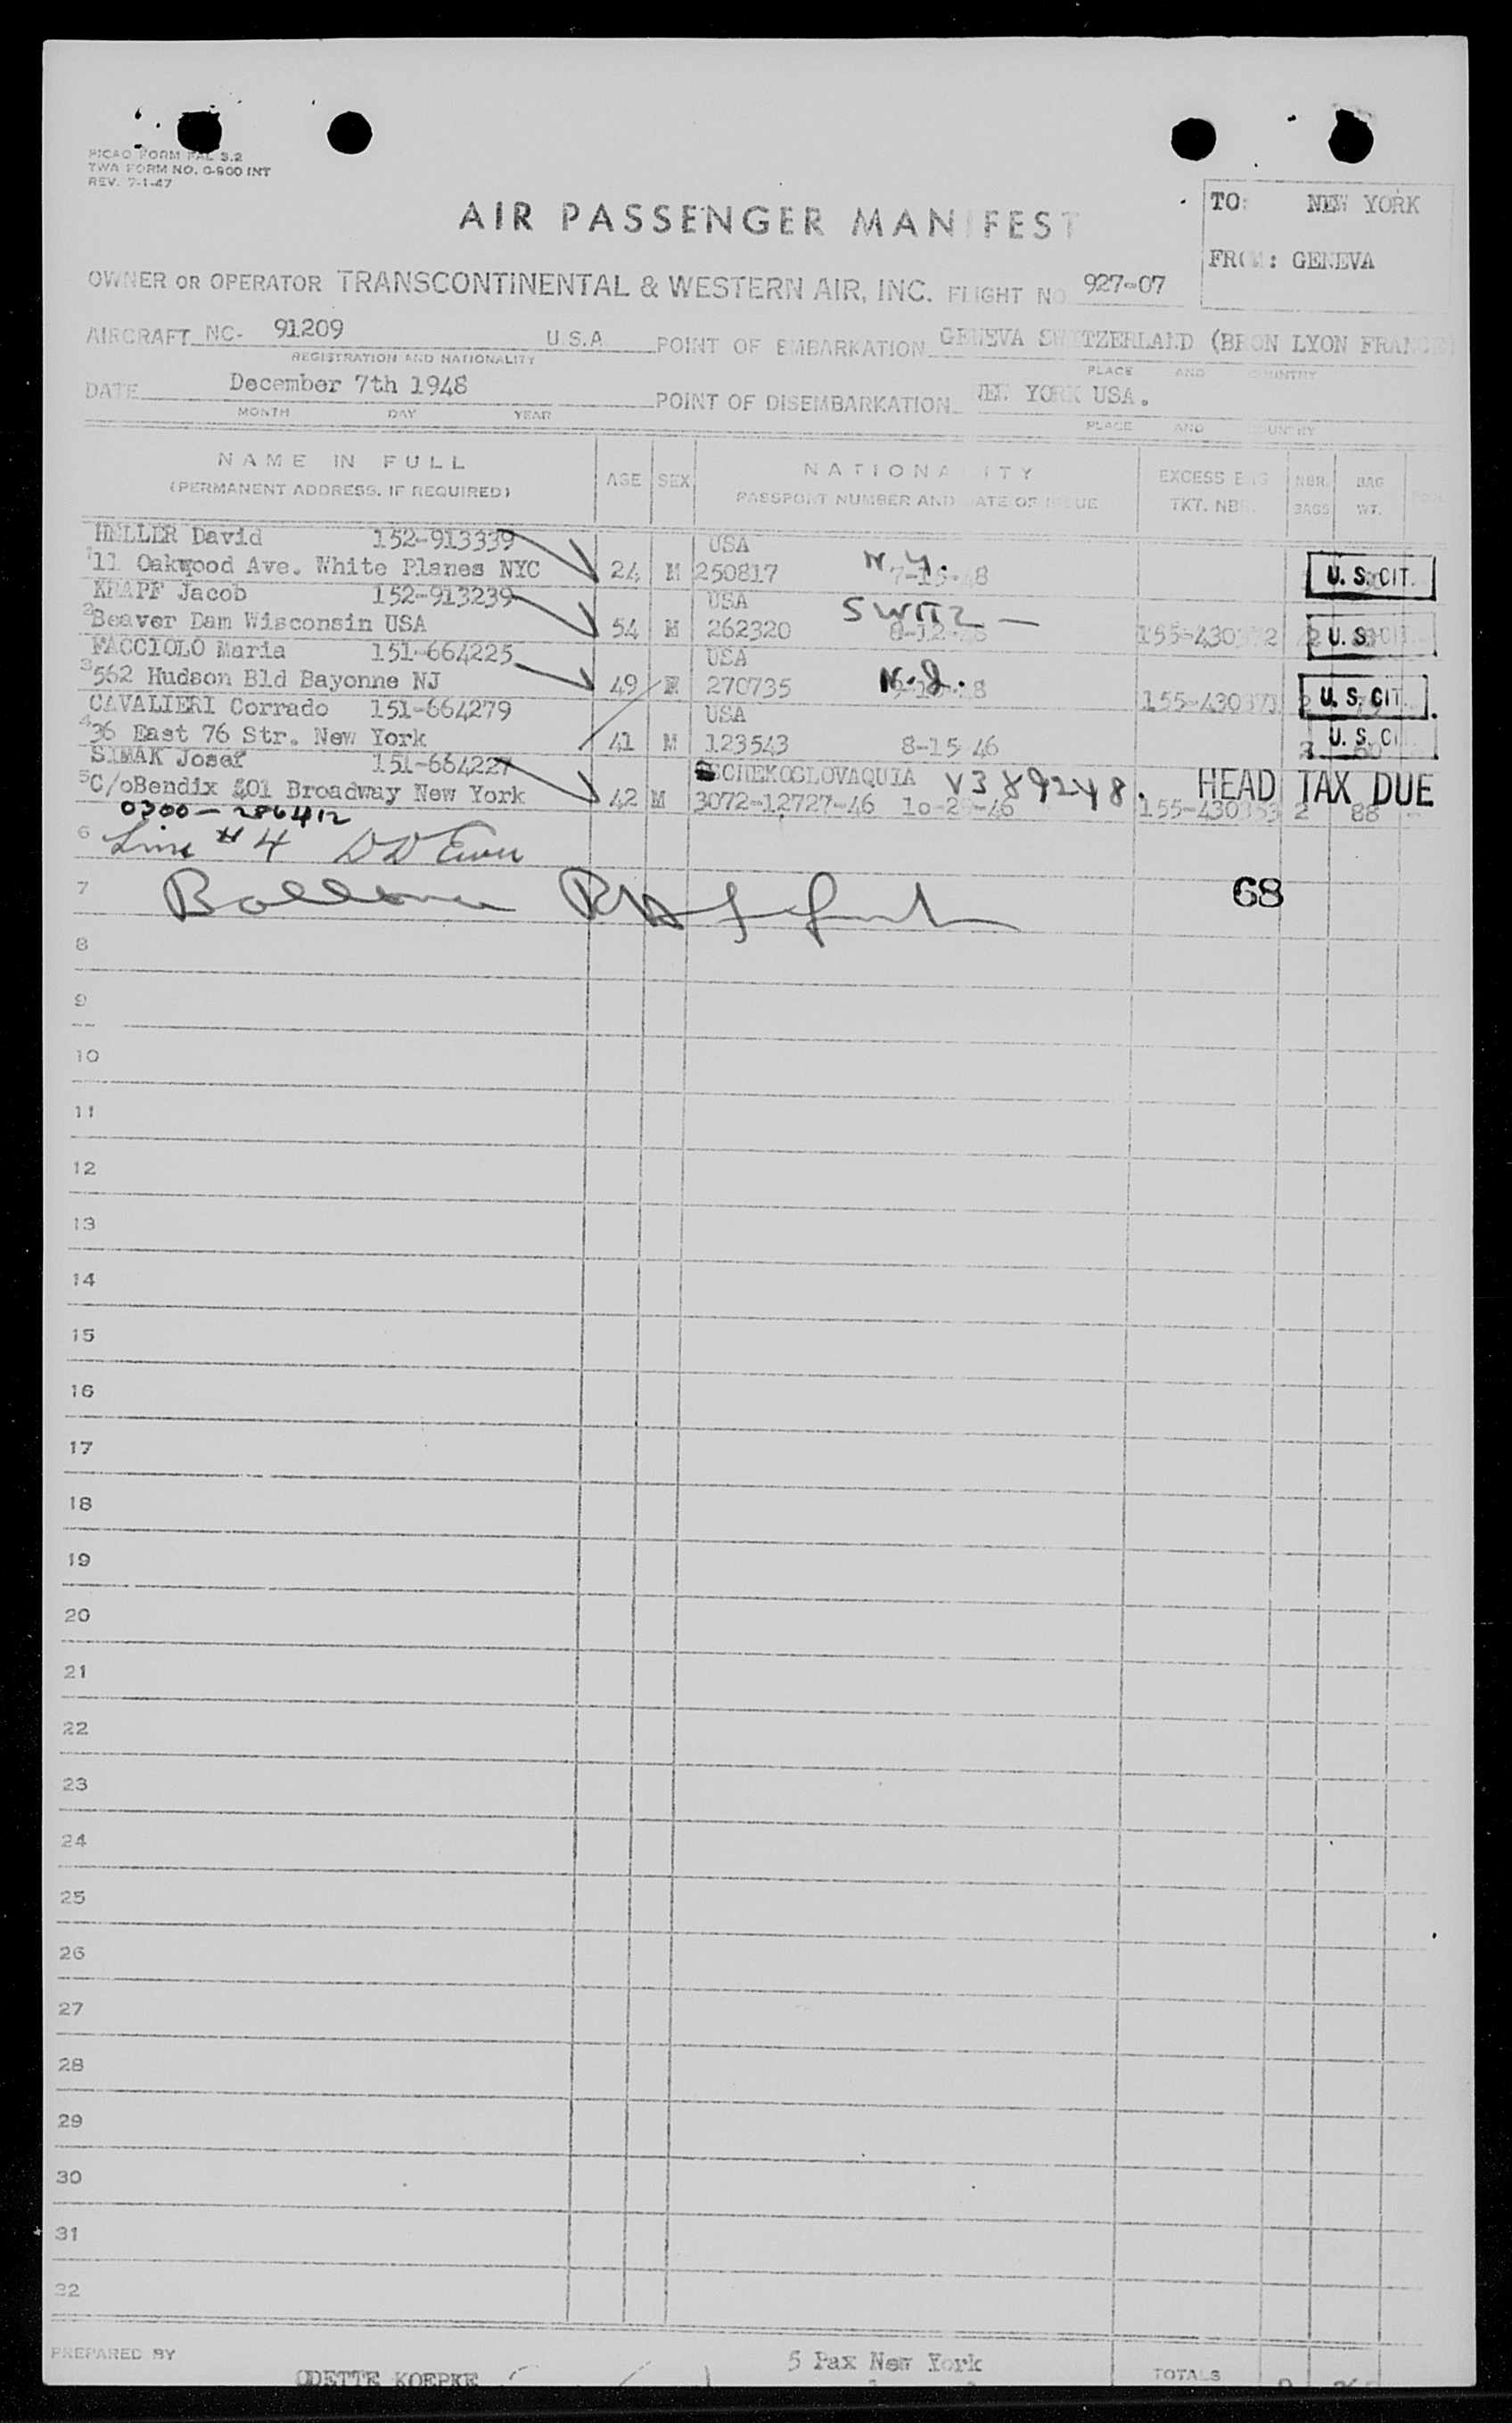 PICAO FORM FAL 3.2
TWA FORM NO. 0-900 INT
REV. 7-1-47
TO: NEW YORK
FROM: GENEVA
AIR PASSENGER MANIFEST
OWNER OR OPERATOR TRANSCONTINENTAL & WESTERN AIR, INC. FLIGHT NO 927-07
AIRCRAFT NC- 91209 U.S.A POINT OF EMBARKATION GENEVA SWITZERLAND (BRON LYON FRANCE)
REGISTRATION AND NATIONALITY PLACE AND COUNTRY
DATE December 7th 1948 POINT OF DISEMBARKATION NEW YORK USA.
MONTH DAY YEAR PLACE AND COUNTRY
NAME IN FULL AGE SEX NATIONALITY EXCESS BAG NBR. BAG
(PERMANENT ADDRESS, IF REQUIRED) PASSPORT NUMBER AND DATE OF ISSUE TKT. NBR. BAGS WT.
HELLER David 152-913339 USA N.Y.
1 11 Oakwood Ave. White Planes NYC 24 M 250817 7-15-48 U.S. CIT.
KRAPF Jacob 152-913239 USA SWITZ —
2 Beaver Dam Wisconsin USA 54 M 262320 2 U.S. CIT
FACCIOLO Maria 151-664225 USA N.J.
3 562 Hudson Bld Bayonne NJ 49 F 270735 2 U.S. CIT.
CAVALIERI Corrado 151-664279 USA
4 36 East 76 Str. New York 41 M 123543 8-15-46 60 U.S. CI
SIMAK Josef 151-664227 SCHEKOSLOVAQUIA V389248. HEAD TAX DUE
5 C/oBendix 401 Broadway New York 42 M 3072-12727-46 2 88
0300-286412
6 Line #4
7 68
8
9
10
11
12
13
14
15
16
17
18
19
20
21
22
23
24
25
26
27
28
29
30
31
32
PREPARED BY ODETTE KOEPKE 5 Pax New York TOTALS